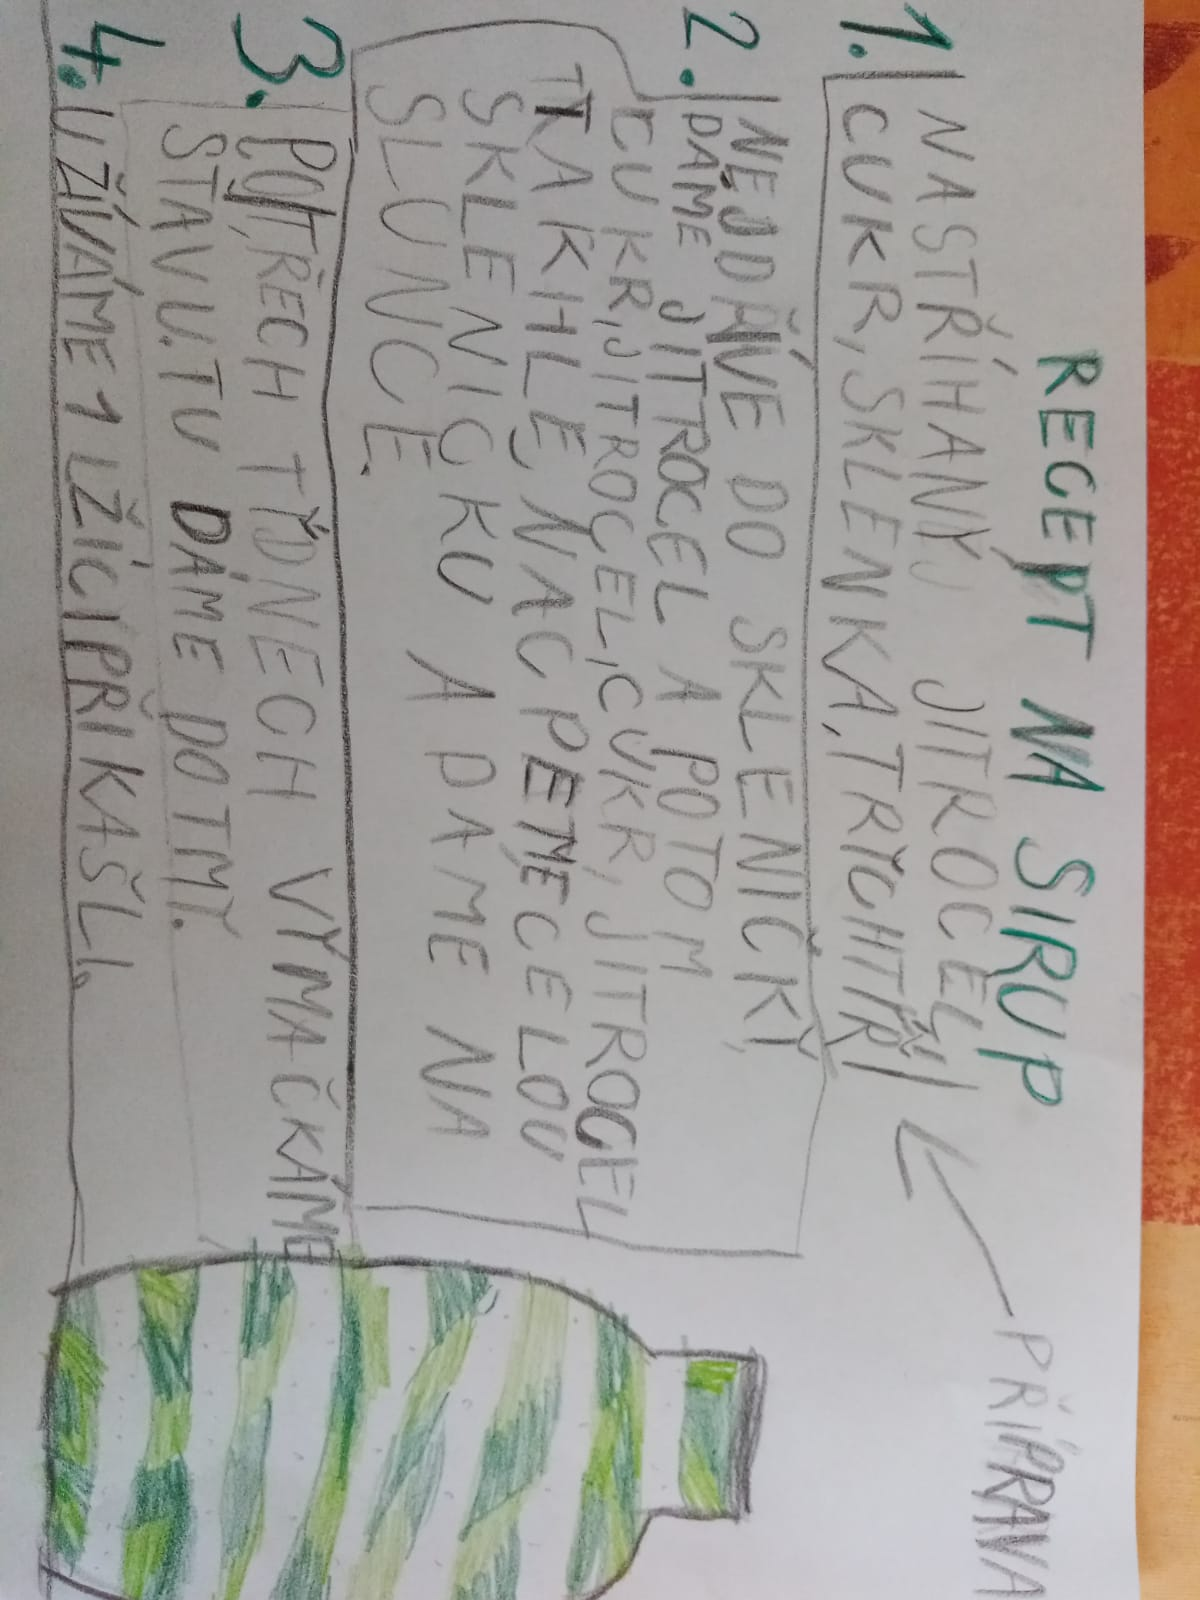 RECEPT NA SIRUP
PŘÍPRAVA
1. NASTŘÍHANÝ JITROCEL,
CUKR, SKLENKA, TRYCHTÝŘ
2. NEJDŘÍVE DO SKLENIČKY,
DÁME JITROCEL A POTOM
CUKR, JITROCEL, CUKR, JITROCEL
TAKHLE NACPEME CELOU
SKLENICKU A DAME NA
SLUNCE.
3. PO TŘECH TÝDNECH VYMAČKÁME
ŠTÁVU. TU DÁME DO TMY.
4. UŽÍVÁME 1 LŽÍCI PŘI KAŠLI.